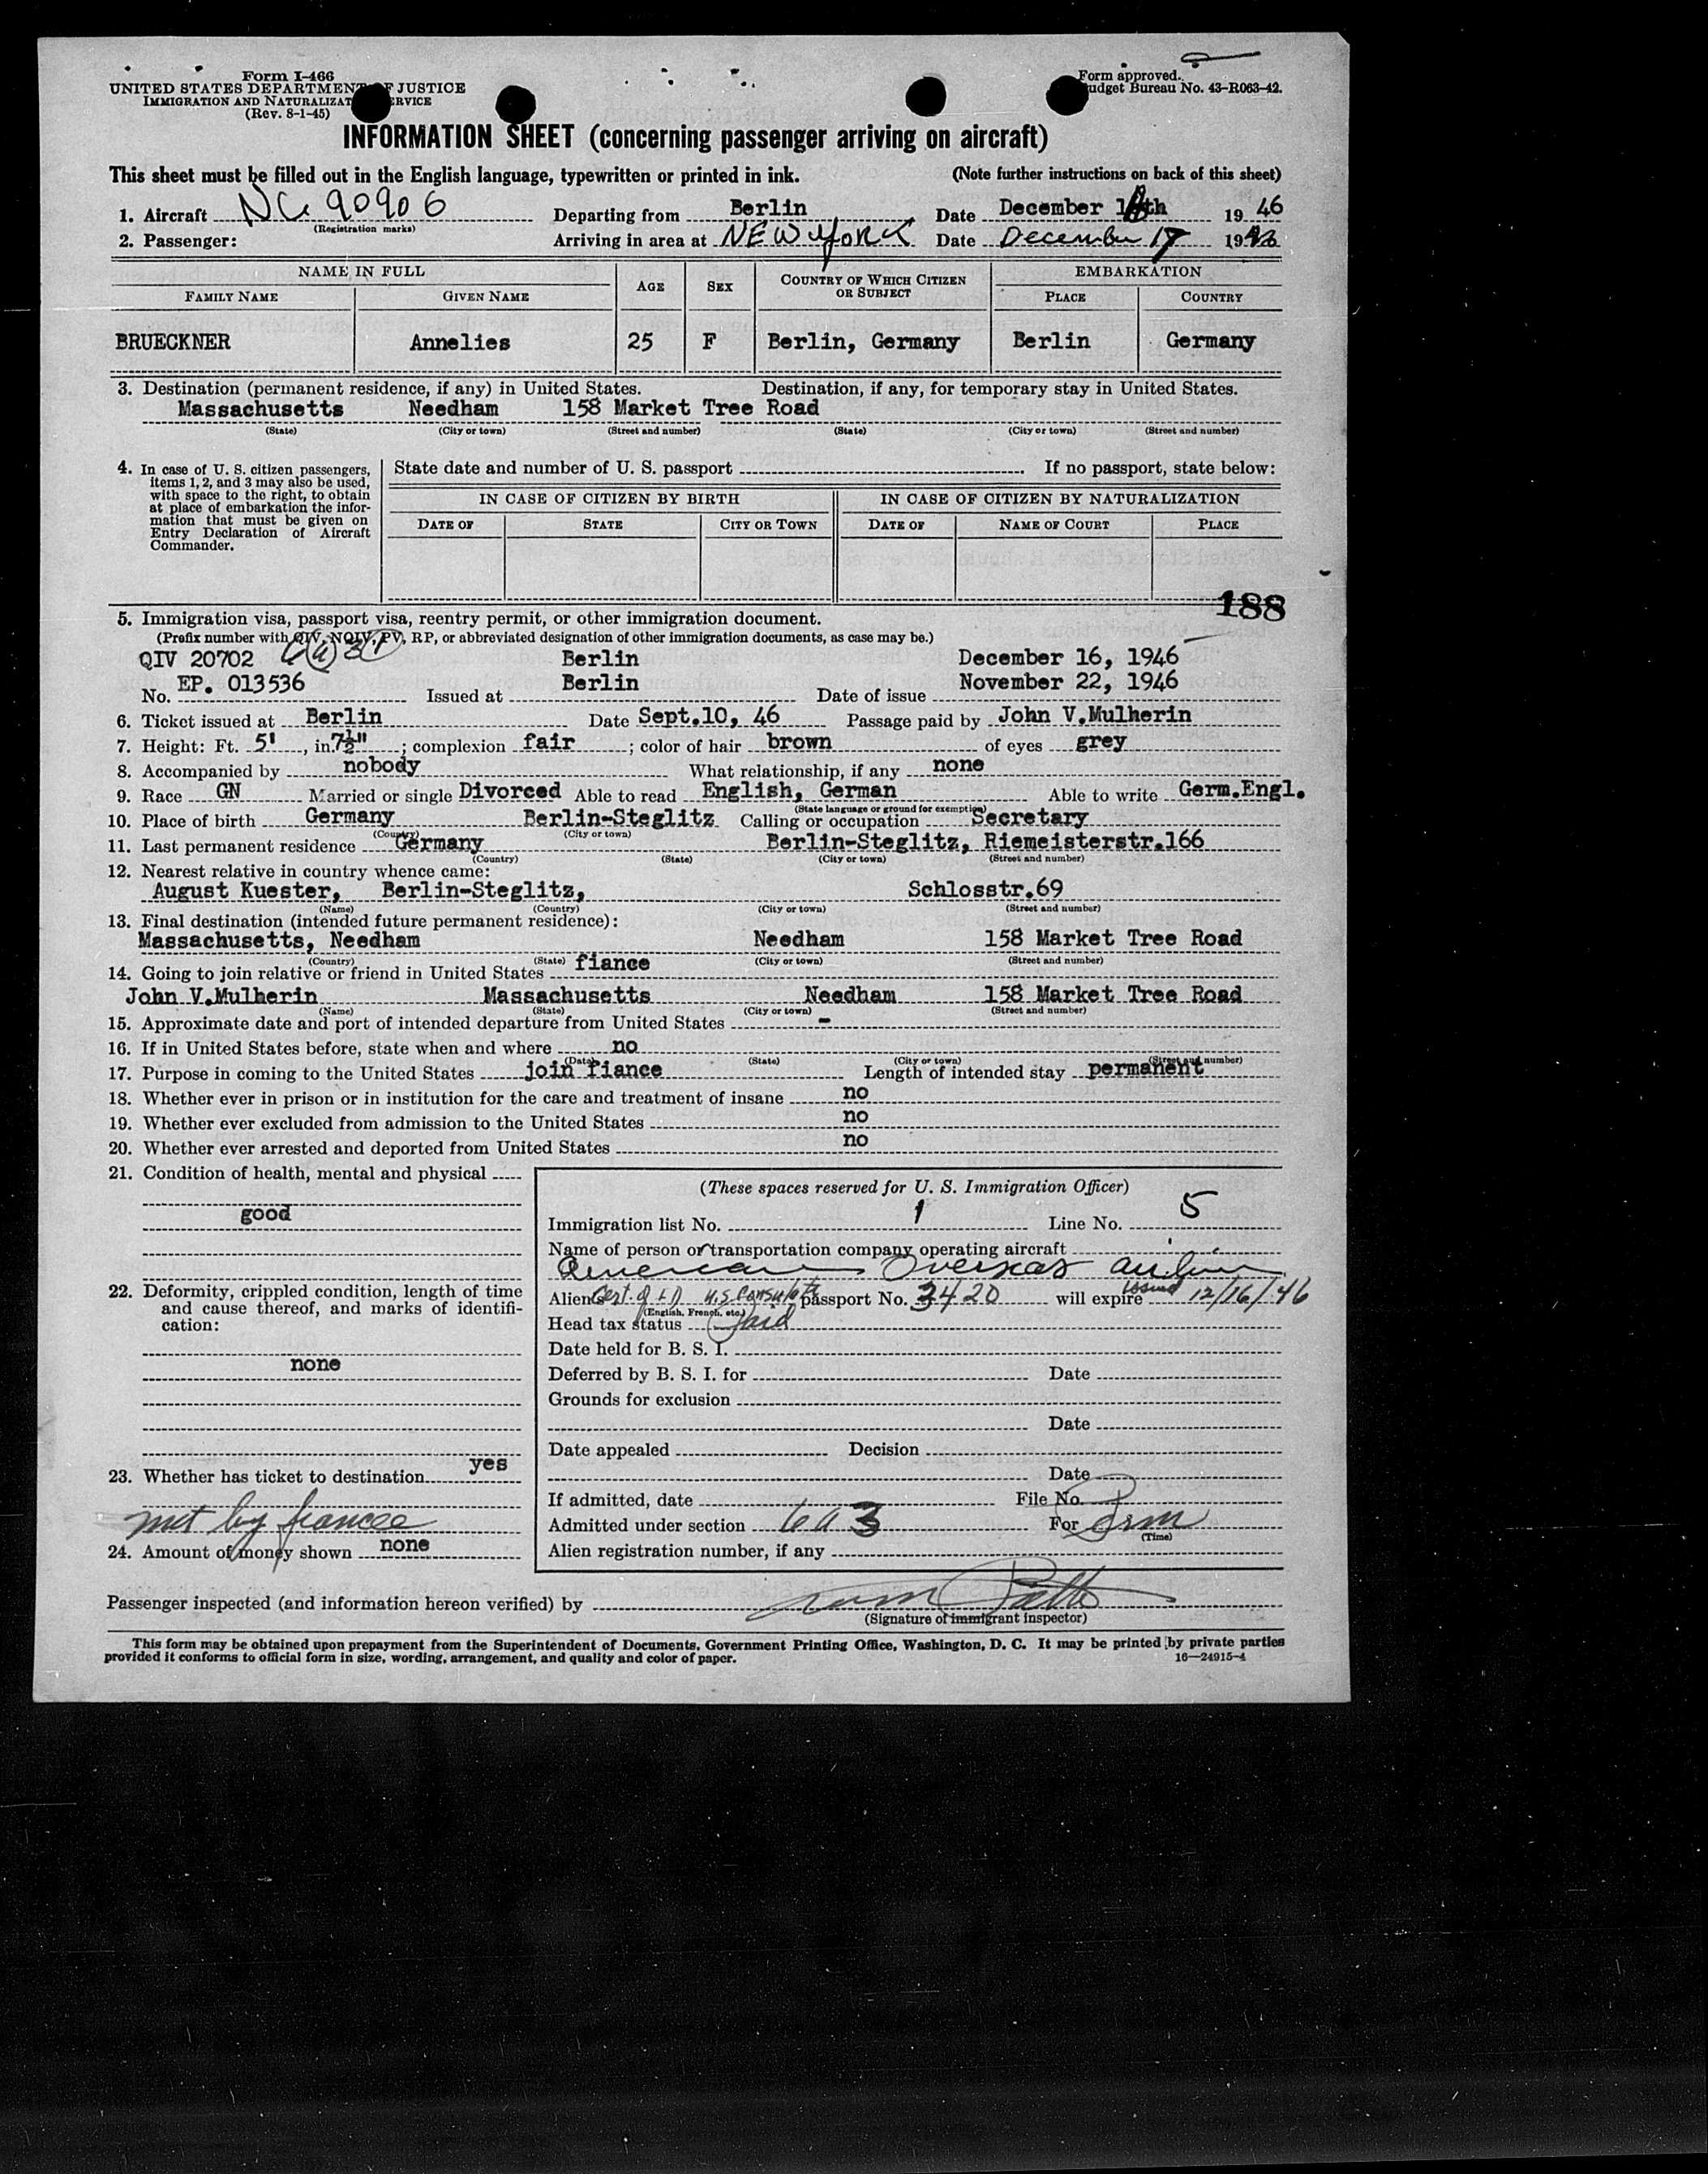 Form I-466
UNITED STATES DEPARTMENT OF JUSTICE
IMMIGRATION AND NATURALIZAT SERVICE
(Rev. 8-1-45)
Form approved.
Budget Bureau No. 43-R063-42.
INFORMATION SHEET (concerning passenger arriving on aircraft)
This sheet must be filled out in the English language, typewritten or printed in ink. (Note further instructions on back of this sheet)
1. Aircraft NC 90906 Departing from Berlin Date December th 19 46
(Registration marks)
2. Passenger: Arriving in area at NEW YORK Date December 17 19 46
NAME IN FULL AGE SEX COUNTRY OF WHICH CITIZEN OR SUBJECT EMBARKATION
FAMILY NAME GIVEN NAME PLACE COUNTRY
BRUECKNER Annelies 25 F Berlin, Germany Berlin Germany
3. Destination (permanent residence, if any) in United States. Destination, if any, for temporary stay in United States.
Massachusetts Needham 158 Market Tree Road
(State) (City or town) (Street and number) (State) (City or town) (Street and number)
4. In case of U. S. citizen passengers, items 1, 2, and 3 may also be used, with space to the right, to obtain at place of embarkation the information that must be given on Entry Declaration of Aircraft Commander.
State date and number of U. S. passport If no passport, state below:
IN CASE OF CITIZEN BY BIRTH IN CASE OF CITIZEN BY NATURALIZATION
DATE OF STATE CITY OR TOWN DATE OF NAME OF COURT PLACE
188
5. Immigration visa, passport visa, reentry permit, or other immigration document.
(Prefix number with QIV, NQIV, PV, RP, or abbreviated designation of other immigration documents, as case may be.)
QIV 20702 Berlin December 16, 1946
No. EP. 013536 Issued at Berlin Date of issue November 22, 1946
6. Ticket issued at Berlin Date Sept.10, 46 Passage paid by John V.Mulherin
7. Height: Ft. 5' , in. 7½" ; complexion fair ; color of hair brown of eyes grey
8. Accompanied by nobody What relationship, if any none
9. Race GN Married or single Divorced Able to read English, German Able to write Germ.Engl.
(State language or ground for exemption)
10. Place of birth Germany Berlin-Steglitz Calling or occupation Secretary
(Country) (City or town)
11. Last permanent residence Germany Berlin-Steglitz, Riemeisterstr.166
(Country) (State) (City or town) (Street and number)
12. Nearest relative in country whence came:
August Kuester, Berlin-Steglitz, Schlosstr.69
(Name) (Country) (City or town) (Street and number)
13. Final destination (intended future permanent residence):
Massachusetts, Needham Needham 158 Market Tree Road
(Country) (State) (City or town) (Street and number)
14. Going to join relative or friend in United States fiance
John V.Mulherin Massachusetts Needham 158 Market Tree Road
(Name) (State) (City or town) (Street and number)
15. Approximate date and port of intended departure from United States -
16. If in United States before, state when and where no
(Date) (State) (City or town) (Street and number)
17. Purpose in coming to the United States join fiance Length of intended stay permanent
18. Whether ever in prison or in institution for the care and treatment of insane no
19. Whether ever excluded from admission to the United States no
20. Whether ever arrested and deported from United States no
21. Condition of health, mental and physical
good
22. Deformity, crippled condition, length of time and cause thereof, and marks of identification:
none
23. Whether has ticket to destination yes
met by fiancee
24. Amount of money shown none
(These spaces reserved for U. S. Immigration Officer)
Immigration list No. 1 Line No. 5
Name of person or transportation company operating aircraft
American Overseas Airlines
Aliens Cert. of I.D. U.S. Consulate passport No. 3420 will expire issued 12/16/46
(English, French, etc.)
Head tax status Paid
Date held for B. S. I.
Deferred by B. S. I. for Date
Grounds for exclusion
Date
Date appealed Decision
Date
If admitted, date File No.
Admitted under section 6a3 For Prm
(Time)
Alien registration number, if any
Passenger inspected (and information hereon verified) by
(Signature of immigrant inspector)
This form may be obtained upon prepayment from the Superintendent of Documents, Government Printing Office, Washington, D. C. It may be printed by private parties
provided it conforms to official form in size, wording, arrangement, and quality and color of paper. 16—24915-4